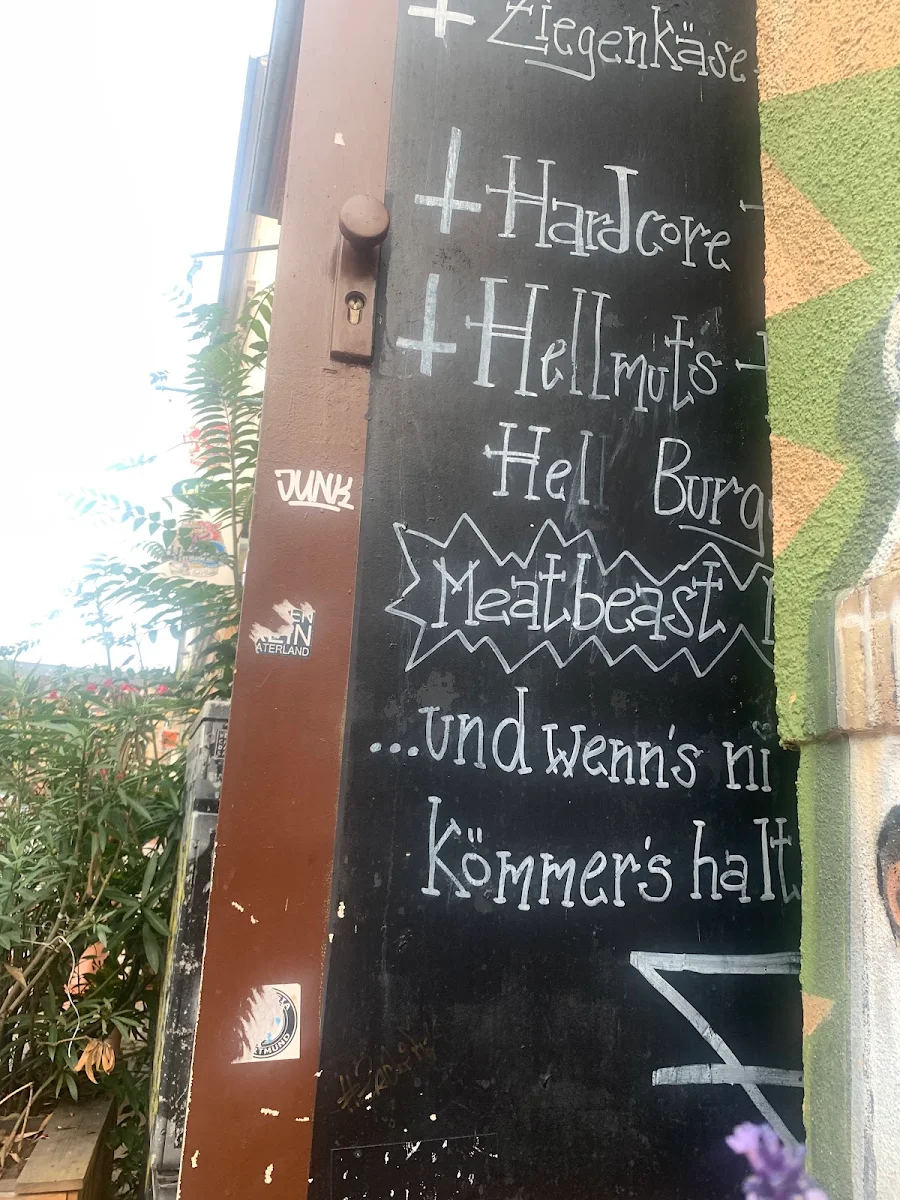 + Ziegenkäse
+ Hardcore +
+ Hellmuts +
Hell Burg
Meatbeast
...und wenn's ni
kömmer's halt
JUNK
EN
KEIN
ATERLAND
RTMUND